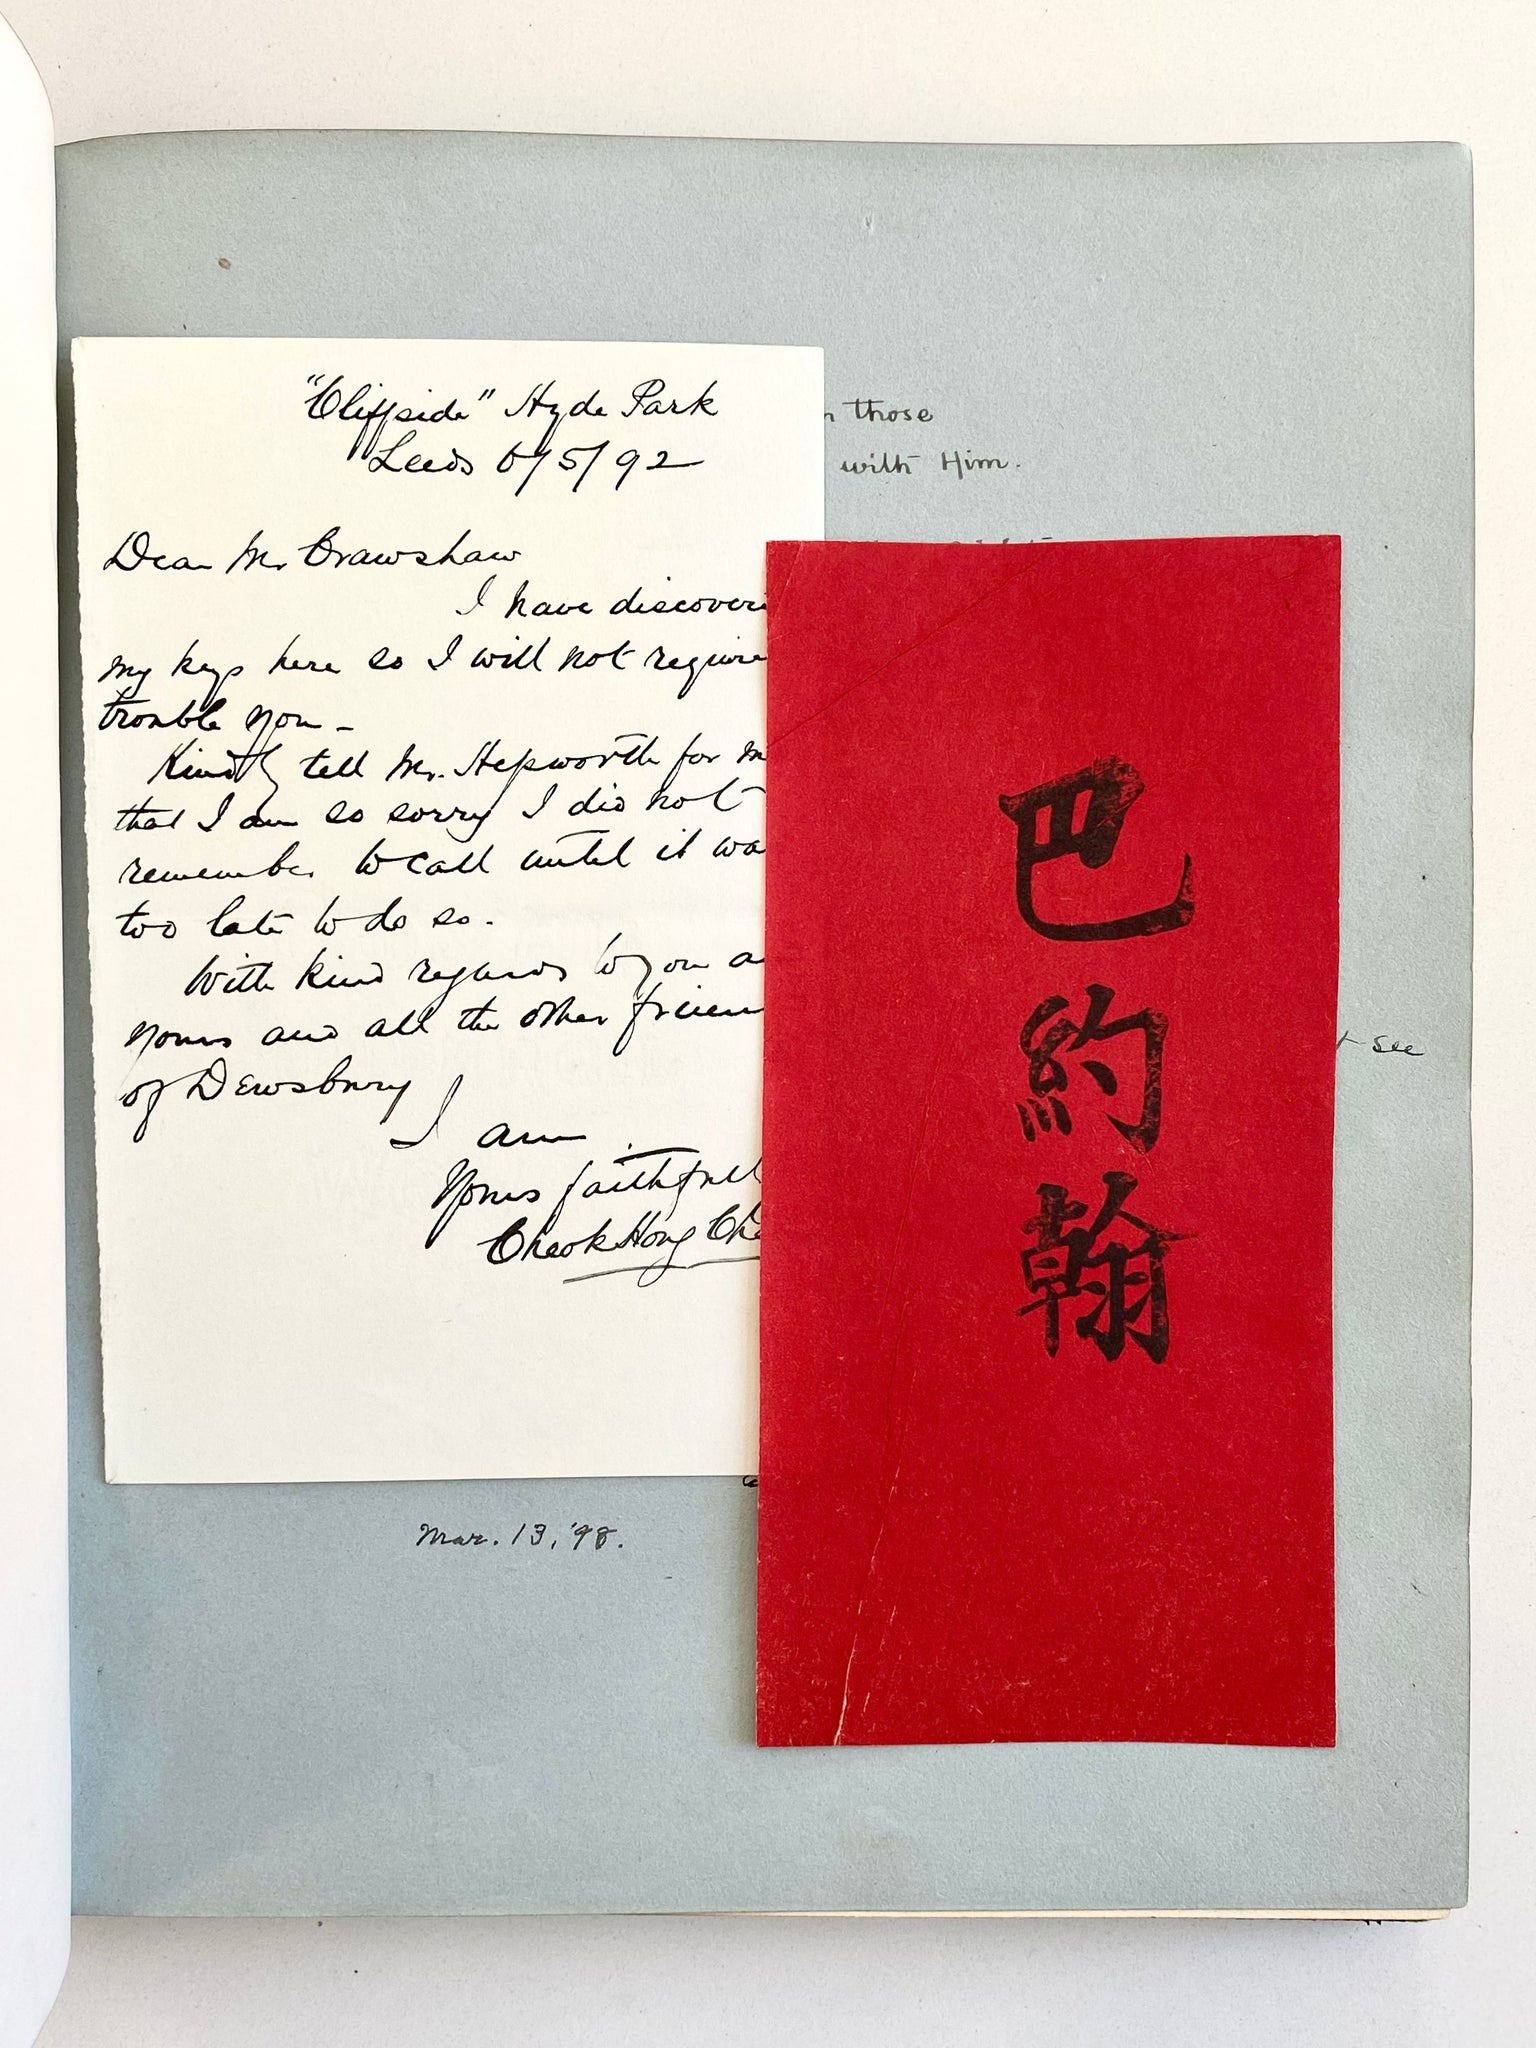 "Cliffside" Hyde Park
Leeds 6/5/92
Dear Mr Crawshaw
I have discoveri
my keys here so I will not require
trouble you -
Kindly tell Mr. Hepworth for m
that I am so sorry I did not
remember to call until it wa
too late to do so.
With kind regards to you a
yours and all the other frien
of Dewsbury
I am
Yours faithfull
Cheok Hong Che
n those
with Him.
see
Mar. 13, '98.
巴約翰